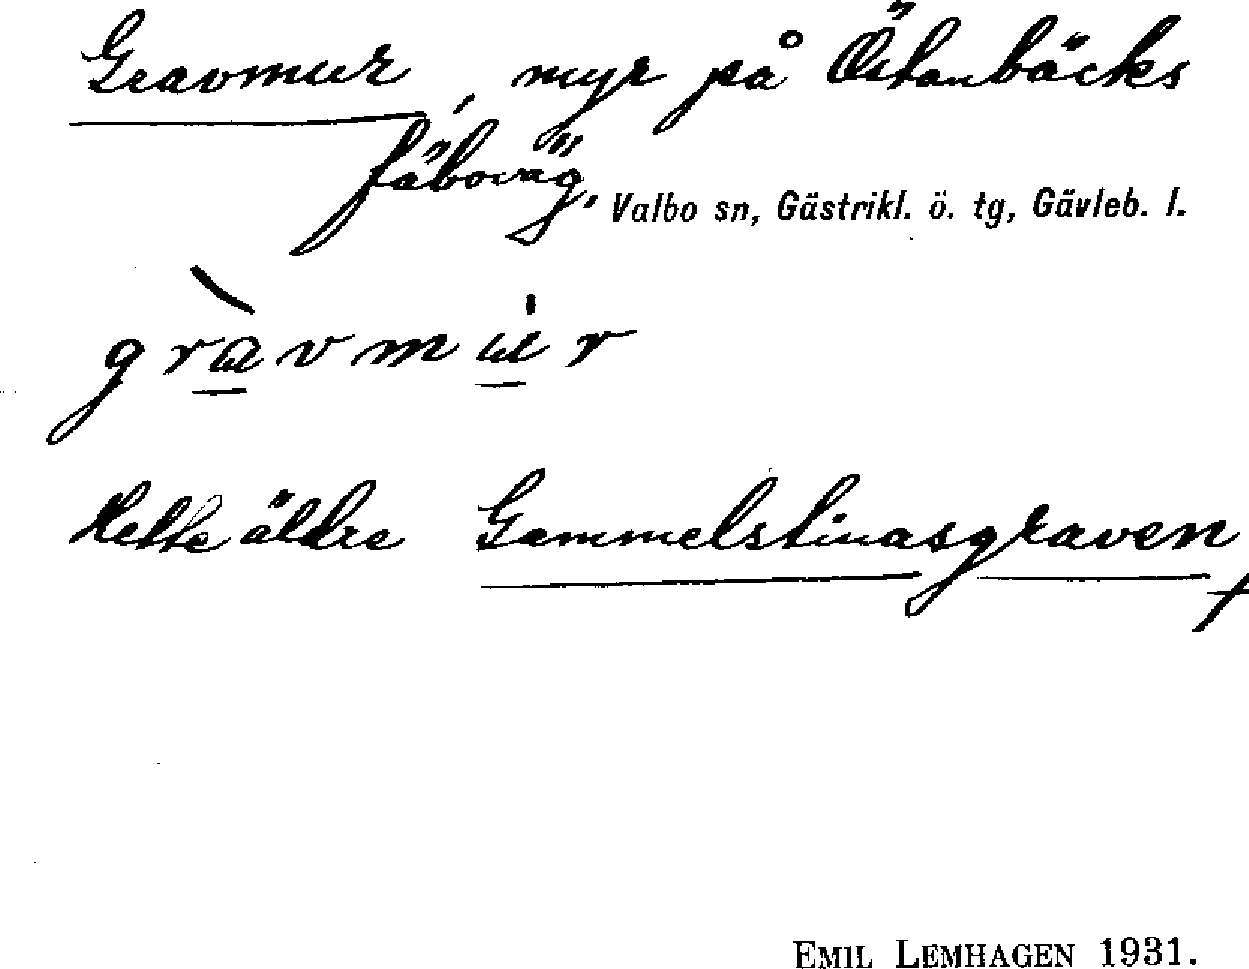 Gravmur, myr på Östanbäcks
fäboväg, Valbo sn, Gästrikl. ö. tg, Gävleb. l.
gràvmu̇r
Hette äldre Gammelstinasgraven
EMIL LEMHAGEN 1931.